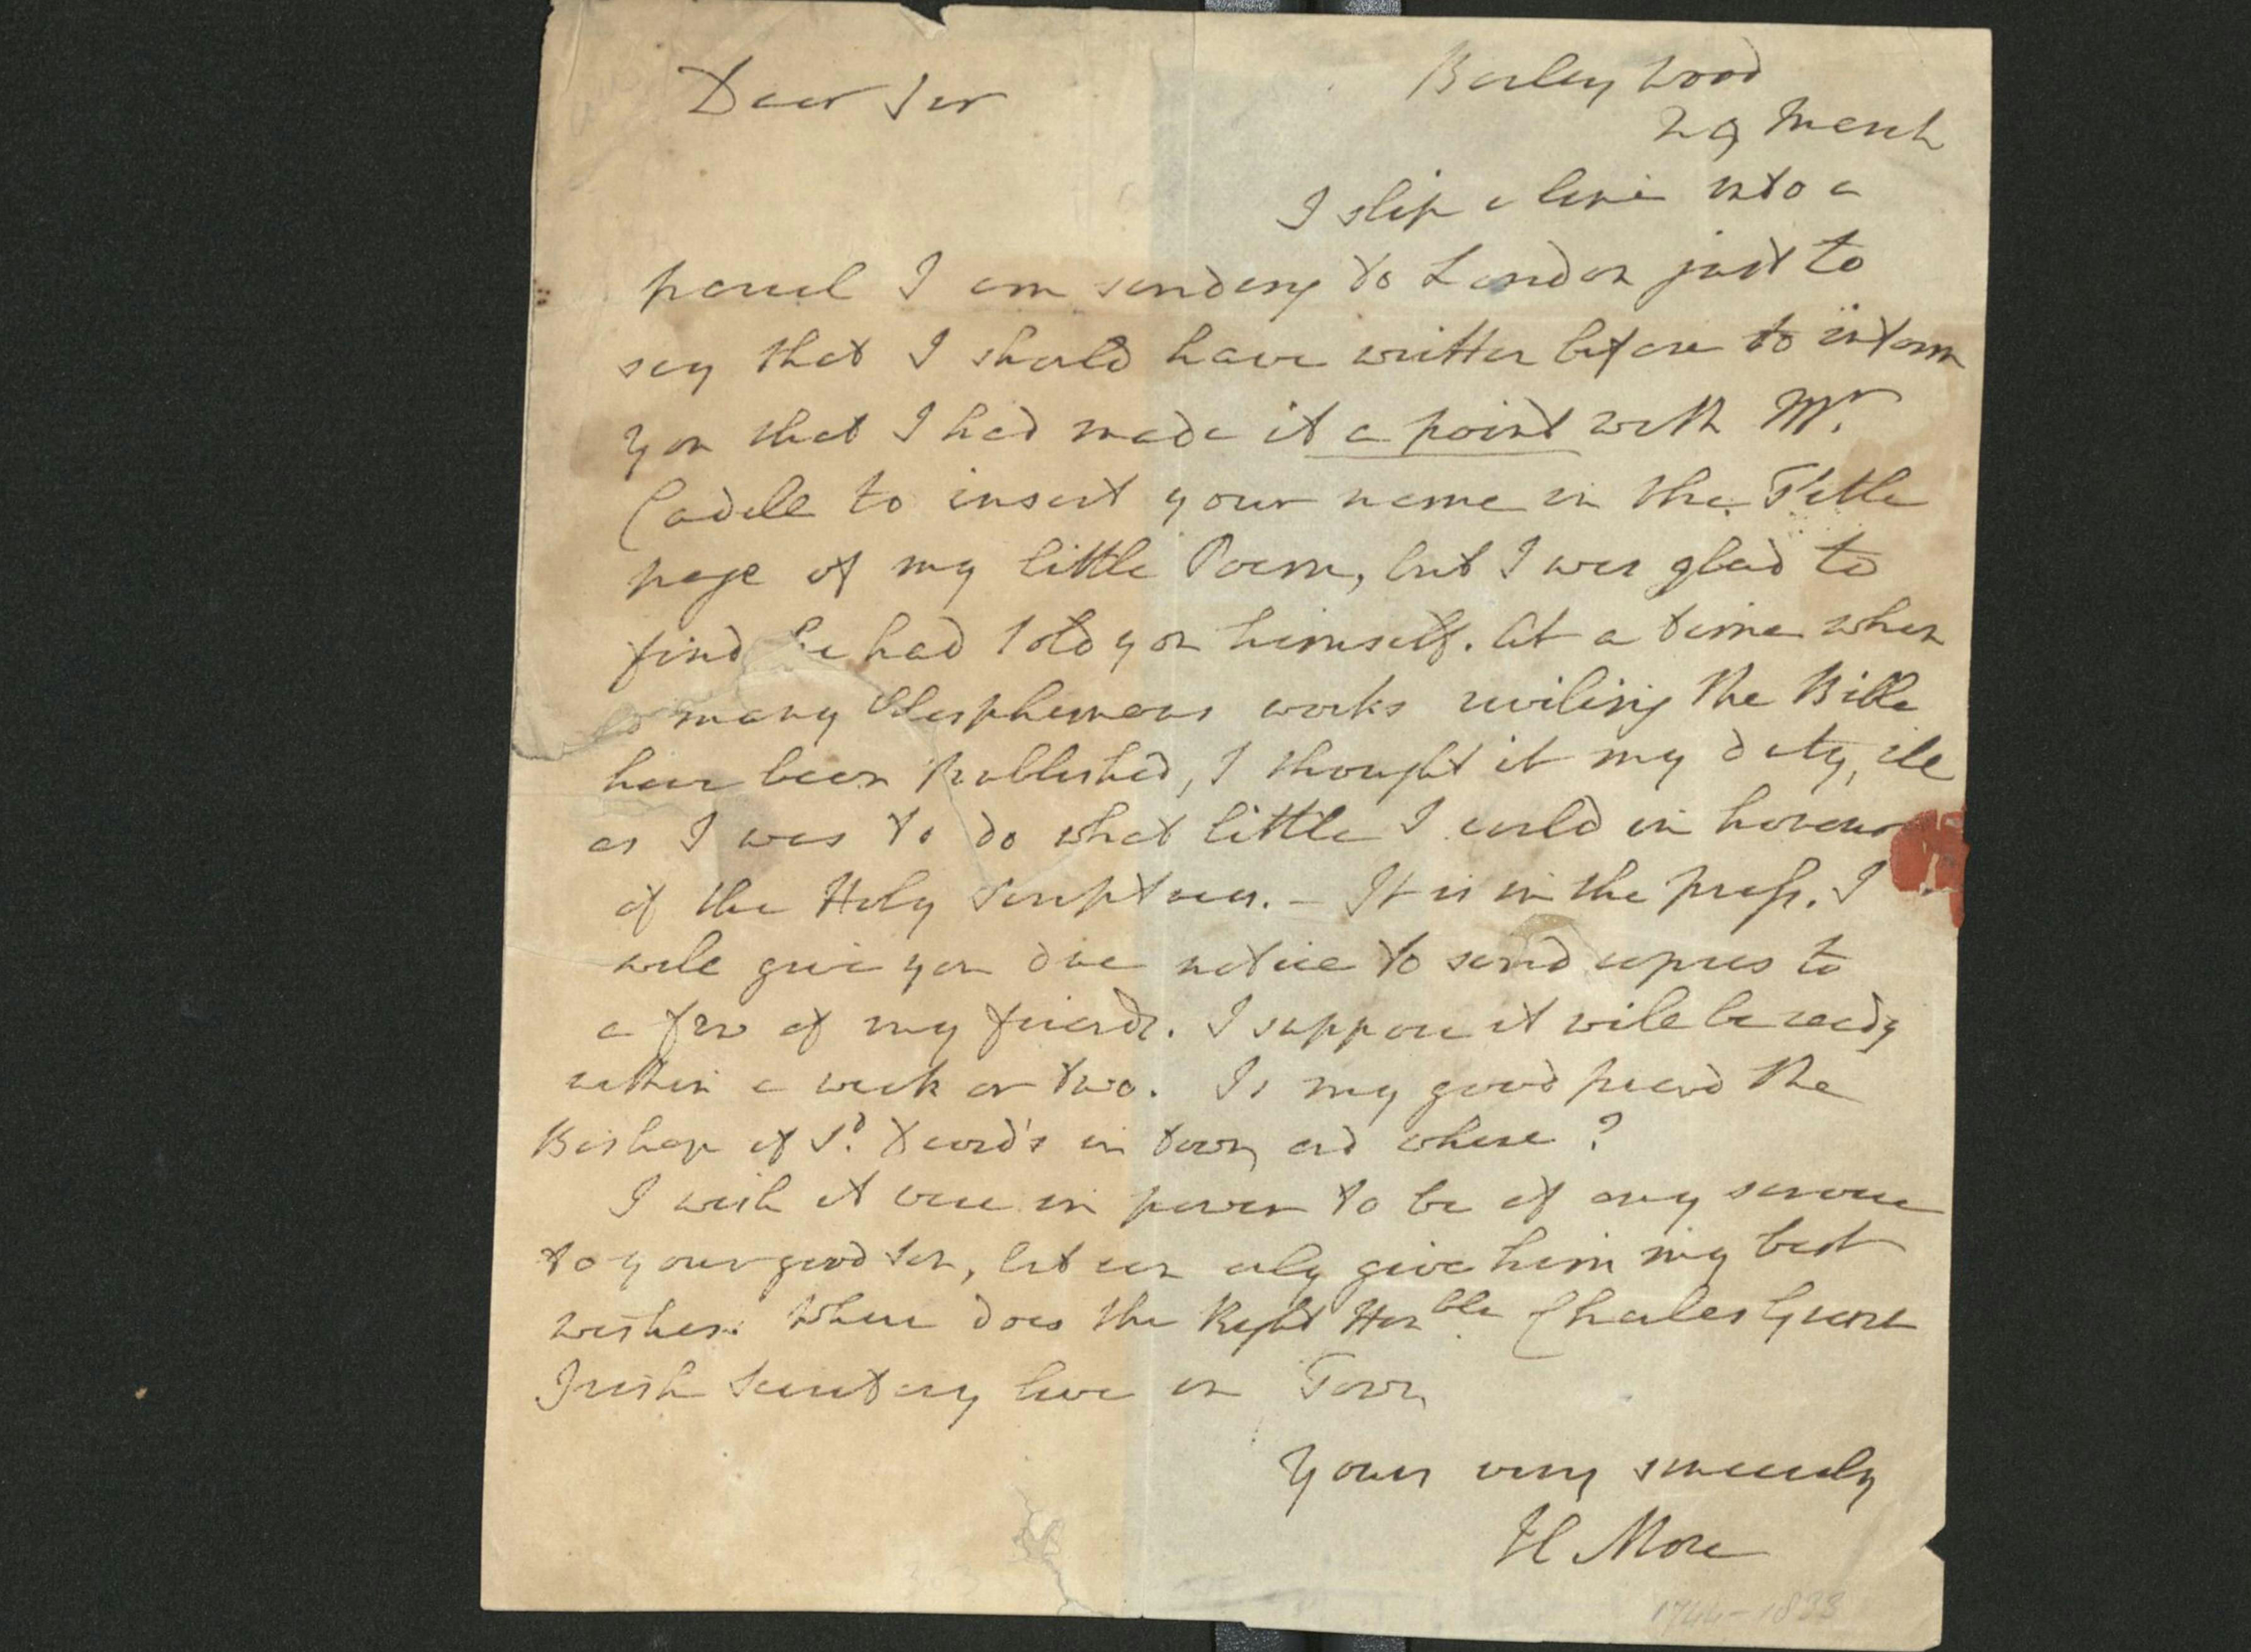 Dear Sir
Barley Wood
29 March
I slip a line into a
parcel I am sending to London just to
say that I should have written before to inform
you that I had made it a point with Mr.
Cadell to insert your name in the Title
page of my little Poem, but I was glad to
find he had told you himself. At a time when
so many blasphemous works reviling the Bible
have been published, I thought it my duty, ill
as I was to do what little I could in honour
of the Holy Scriptures. - It is in the press. I
will give you due notice to send copies to
a few of my friends. I suppose it will be ready
within a week or two. Is my good friend the
Bishop of St. David's in town and where?
I wish it were in power to be of any service
to your good son, but can only give him my best
wishes. Where does the Right Honble Charles Grant
Irish Secretary live in Town
Yours very sincerely
H More
1744-1833